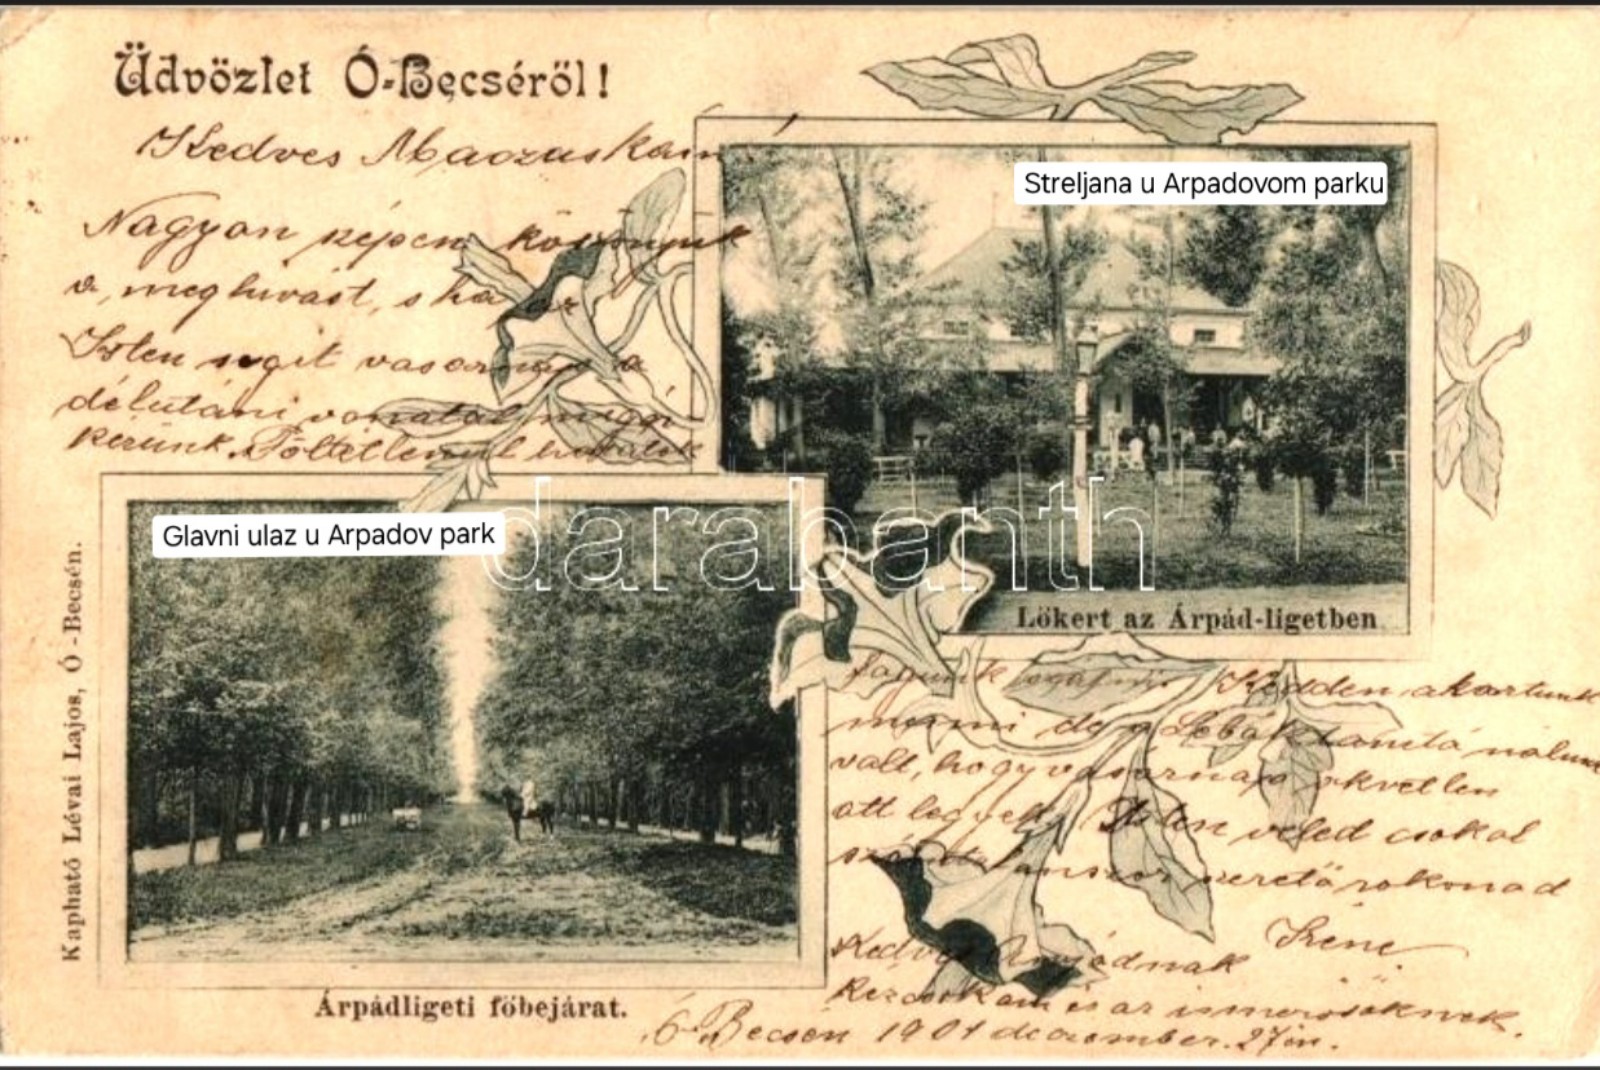 Üdvözlet Ó-Becséről!
Kedves
Nagyon szépen köszönjük
a meghivást, s ha az
Isten segit vasarnap a
délutáni vonatal
kérünk. Föltetlenul
Streljana u Arpadovom parku
Lőkert az Árpád-ligetben
Glavni ulaz u Arpadov park
darabanth
Kapható Lévai Lajos, Ó-Becsén.
Árpádligeti főbejárat.
fogunk Kedden akartunk
menni de a tanitó nálunk
valt, hogy vasarnap okvetlen
ott legyek. Isten veled csokol
szamtalanszor szerető rokonod
Iréne
Kedves Anyádnak
kezcsokam és az ismerősöknek.
Ó-Becsén 1901 december 27én.